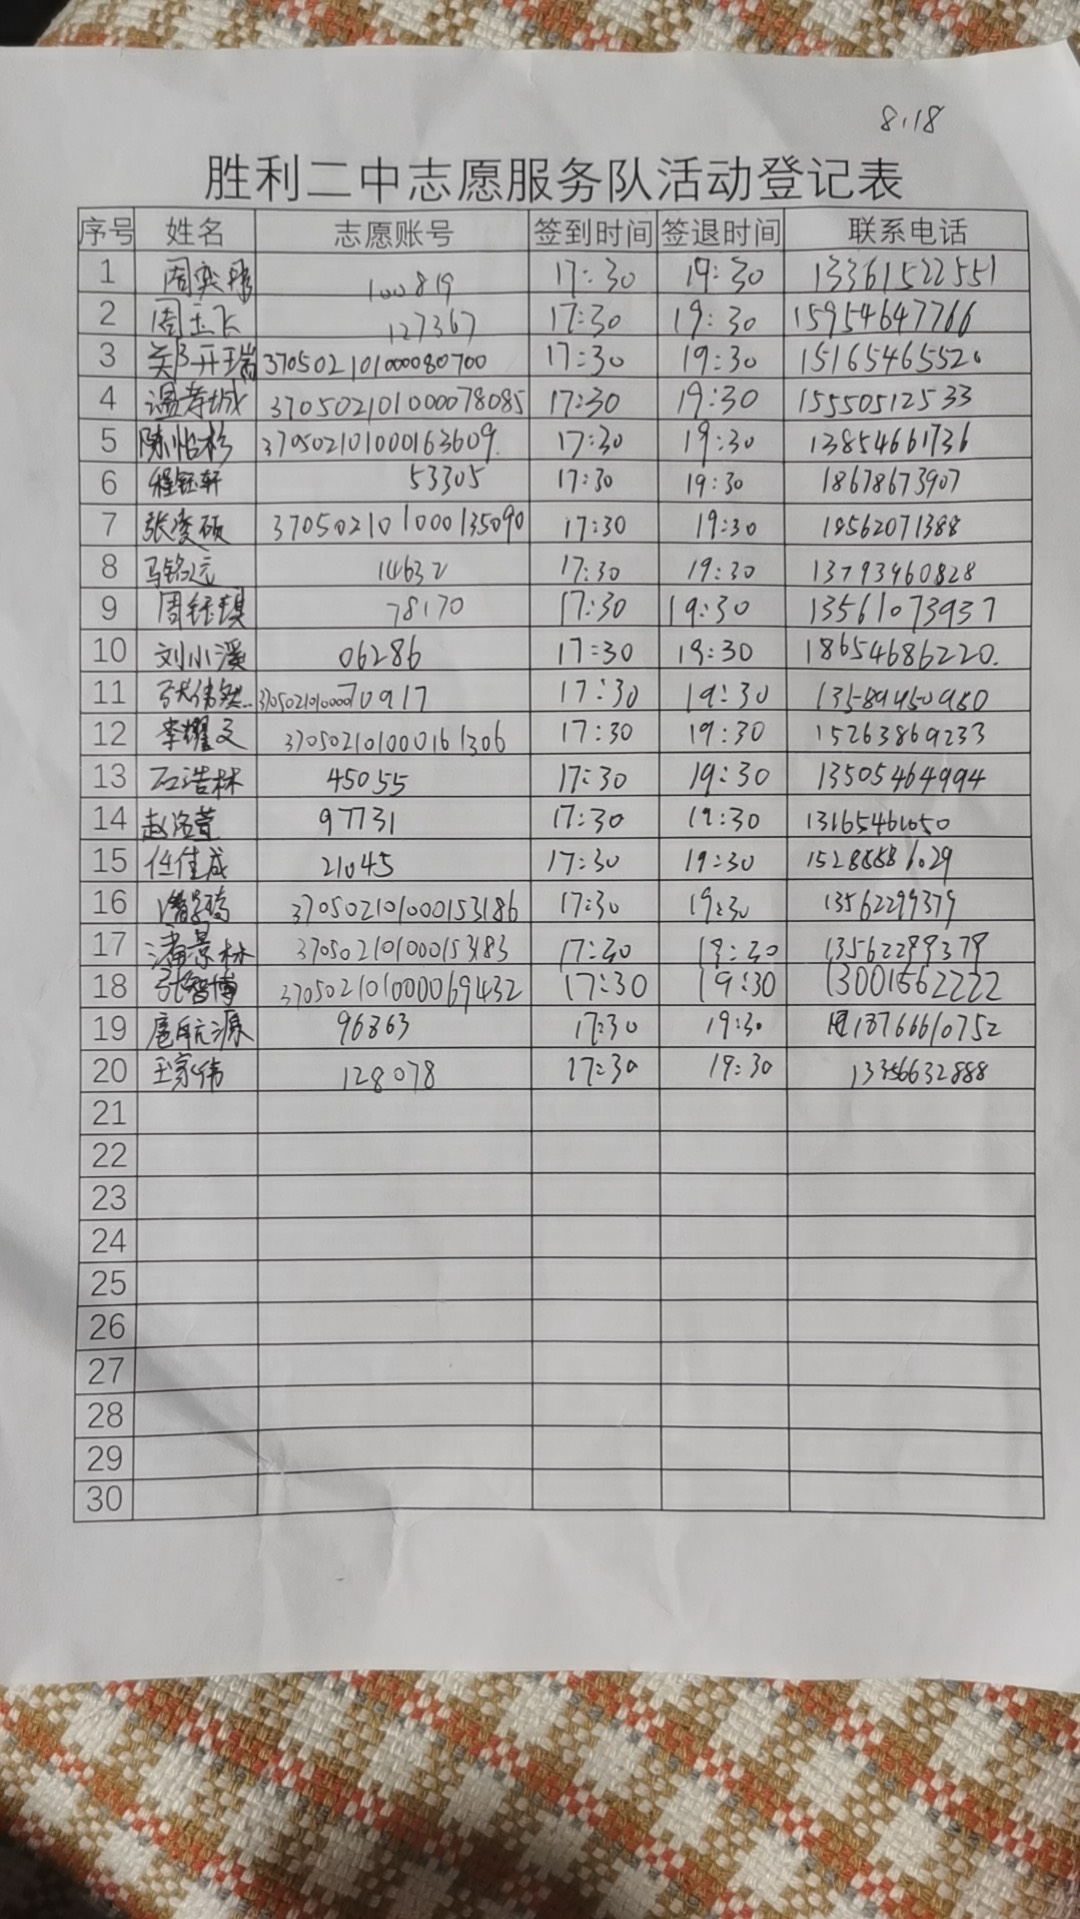 8.18
胜利二中志愿服务队活动登记表
序号 姓名 志愿账号 签到时间 签退时间 联系电话
1 周奕 100819 17:30 19:30 13361522551
2 周玉飞 127367 17:30 19:30 15954647766
3 郑开瑞 370502101000080700 17:30 19:30 15165465520
4 温寿城 370502101000078085 17:30 19:30 15550512533
5 陈怡杉 370502101000163609. 17:30 19:30 13854661736
6 程钰轩 53305 17:30 19:30 18678673907
7 张凌硕 370502101000135090 17:30 19:30 18562071388
8 马铭远 14632 17:30 19:30 13793960828
9 周钰琪 78170 17:30 19:30 13561073937
10 刘小溪 06286 17:30 19:30 18654686220.
11 张伟 370502101000070917 17:30 19:30 13589450980
12 李耀文 370502101000161306 17:30 19:30 15263869233
13 石浩林 45055 17:30 19:30 13505464994
14 赵洛萱 97731 17:30 19:30 13165461050
15 任佳成 21045 17:30 19:30 15288886029
16 潘 370502101000153186 17:30 19:30 13562299379
17 潘景林 370502101000153183 17:30 19:30 13562299379
18 张智博 370502101000069432 17:30 19:30 13001562222
19 扈航源 96863 17:30 19:30 18766610752
20 王家伟 128078 17:30 19:30 13356632888
21
22
23
24
25
26
27
28
29
30